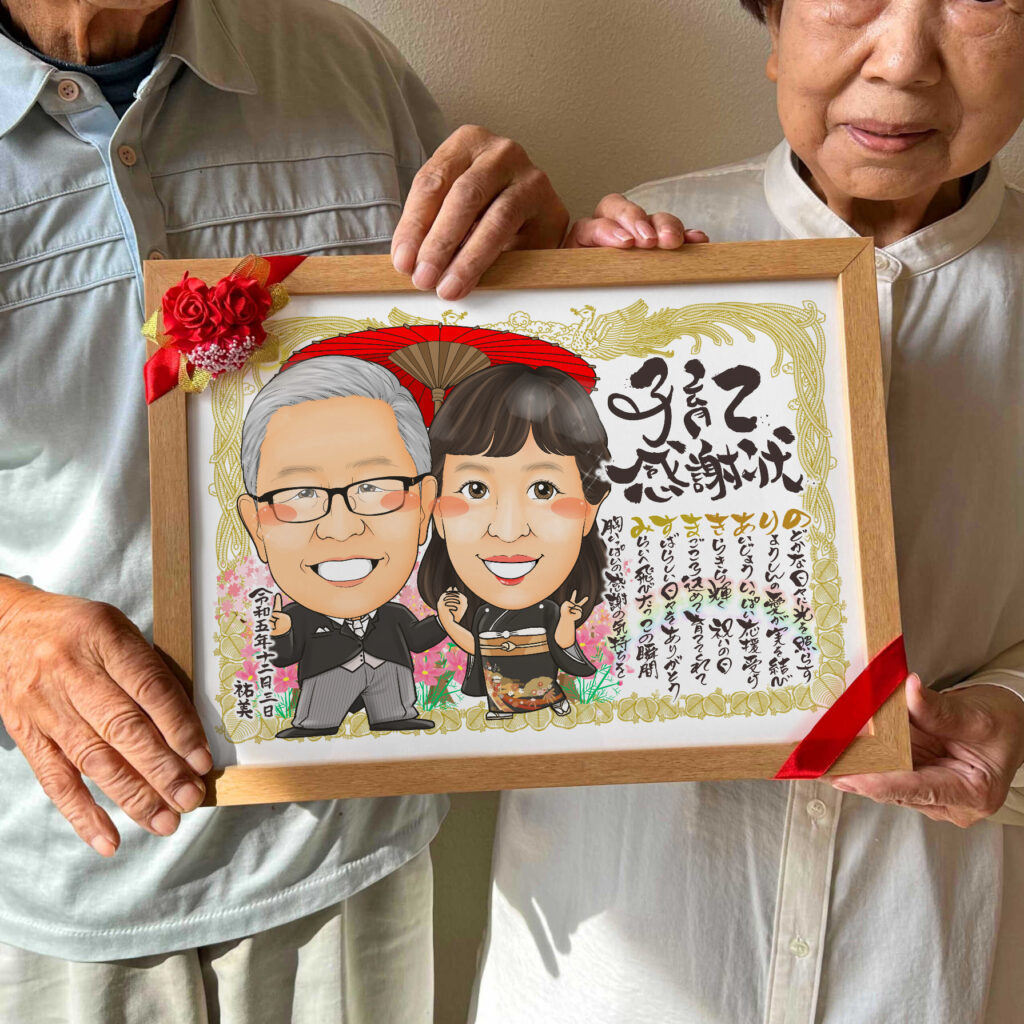 子育て
感謝状
のどかな日々に光を照らす
りょうしんの愛が実る結び
あいじょういっぱい応援受け
きらきらり輝く祝いの日
まごころ込めて育ててくれて
すばらしい日々をありがとう
みらいへ飛びたつこの瞬間
胸いっぱいの感謝の気持ちを
令和五年十二月三日
祐美